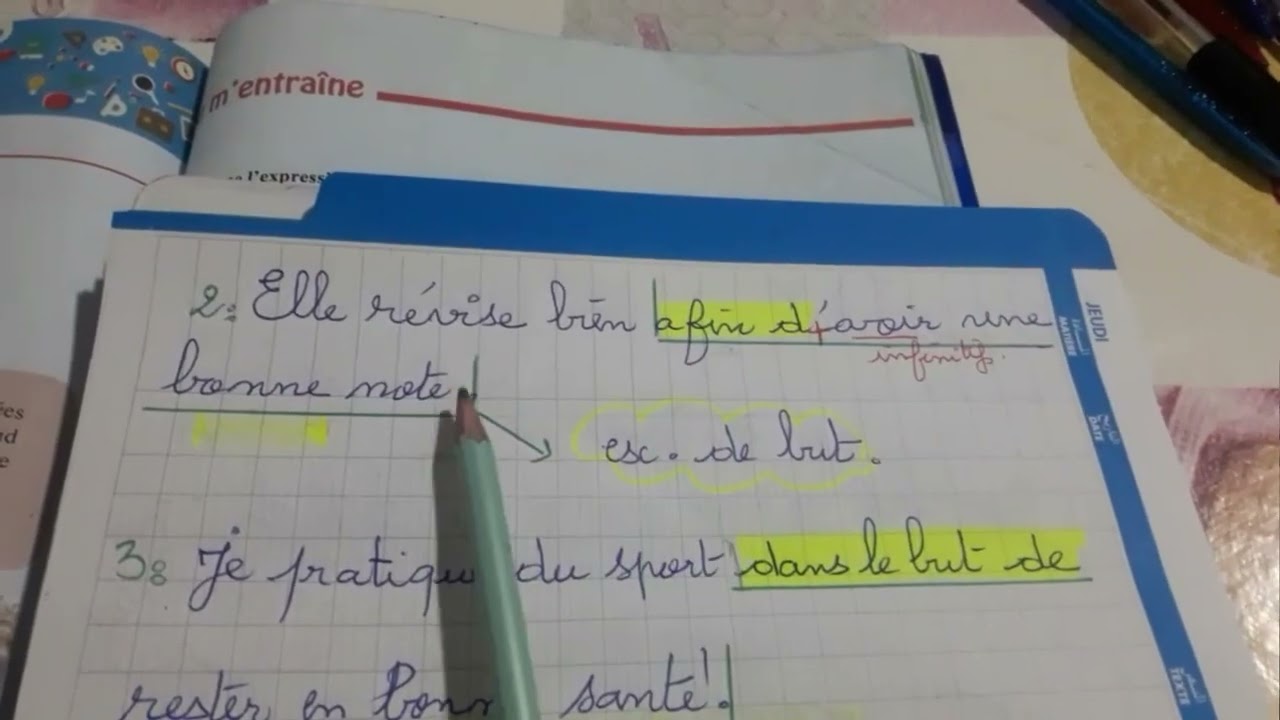 m'entraîne
l'express
2: Elle révise bien afin d'avoir une
infinitif.
bonne note.
esc. de but.
3: Je pratique du sport dans le but de
rester en bonn santé!
JEUDI
MATIÈRE
DATE
TEXTE